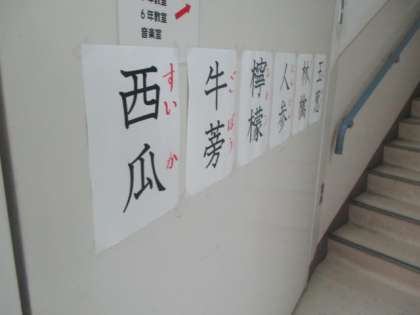 ５年教室
６年教室
音楽室
西瓜
すいか
牛蒡
ごぼう
檸檬
人参
林檎
玉葱